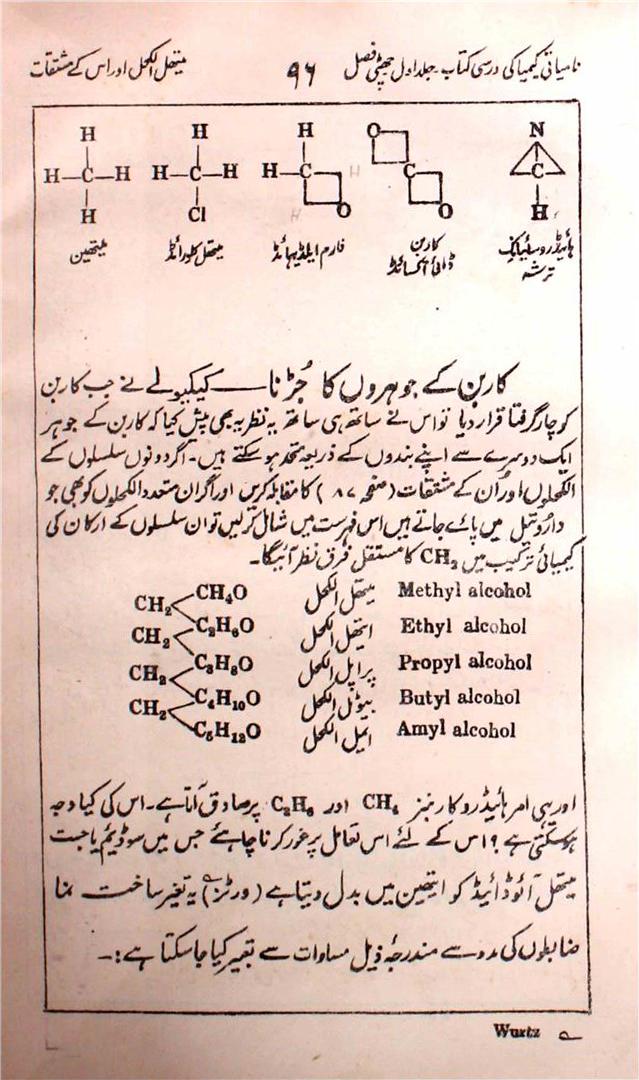 نامیاتی کیمیا کی درسی کتاب - جلد اول چھٹی فصل ۹۶ میتھل الکحل اور اس کے مشتقات
H H H O N
H—C—H H—C—H H—C C C
H Cl O O H
میتھین میتھل کلورائڈ فارم ایلڈیہائڈ کاربن ڈائی آکسائڈ ہائیڈروسیانک ترشہ
کاربن کے جوہروں کا جُڑنا — کیکیولے نے جب کاربن
کو چار گرفتا قرار دیا تو اس نے ساتھ ہی ساتھ یہ نظریہ بھی پیش کیا کہ کاربن کے جوہر
ایک دوسرے سے اپنے بندوں کے ذریعہ متحد ہوسکتے ہیں۔ اگر دونوں سلسلوں کے
الکحلوں اور اُن کے مشتقات (صفحہ ۸۷) کا مقابلہ کریں اور اگر ان متعدد الکحلوں کو بھی جو
میں پائے جاتے ہیں اس فہرست میں شامل کرلیں تو ان سلسلوں کے ارکان کی
کیمیائی ترکیب میں CH₂ کا مستقل فرق نظر آئیگا۔
CH₂ CH₄O میتھل الکحل Methyl alcohol
CH₂ C₂H₆O ایتھل الکحل Ethyl alcohol
CH₂ C₃H₈O پراپل الکحل Propyl alcohol
CH₂ C₄H₁₀O بیوٹل الکحل Butyl alcohol
C₅H₁₂O ایمل الکحل Amyl alcohol
اور یہی امر ہائیڈروکاربنز CH₄ اور C₂H₆ پر صادق آتا ہے۔ اس کی کیا وجہ
ہوسکتی ہے؟ اس کے لئے اس تعامل پر غور کرنا چاہئے جس میں سوڈیئم یا جست
میتھل آئوڈائیڈ کو ایتھین میں بدل دیتا ہے (ورٹز) یہ تغیر ساخت نما
ضابطوں کی مدد سے مندرجۂ ذیل مساوات سے تعبیر کیا جاسکتا ہے:۔
Wurtz